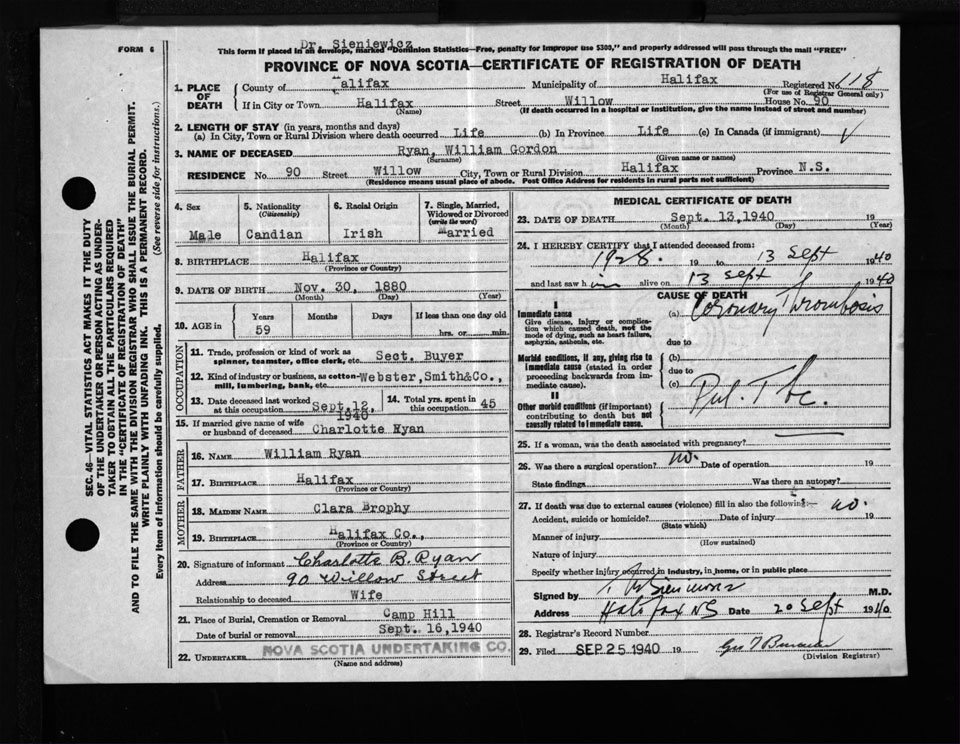 FORM 6
Dr. Sieniewicz
This form if placed in an envelope, marked "Dominion Statistics—Free, penalty for improper use $300," and properly addressed will pass through the mail "FREE"
PROVINCE OF NOVA SCOTIA—CERTIFICATE OF REGISTRATION OF DEATH
1. PLACE OF DEATH
County of alifax Municipality of Halifax Registered No. 118
(For use of Registrar General only)
If in City or Town Halifax Street Willow House No. 90
(Name) (If death occurred in a hospital or institution, give the name instead of street and number)
2. LENGTH OF STAY (in years, months and days)
(a) In City, Town or Rural Division where death occurred Life (b) In Province Life (c) In Canada (if immigrant)
3. NAME OF DECEASED Ryan, William Gordon
(Surname) (Given name or names)
RESIDENCE No. 90 Street Willow City, Town or Rural Division Halifax Province N.S.
(Residence means usual place of abode. Post Office Address for residents in rural parts not sufficient)
4. Sex Male
5. Nationality (Citizenship) Candian
6. Racial Origin Irish
7. Single, Married, Widowed or Divorced (write the word) Married
8. BIRTHPLACE Halifax
(Province or Country)
9. DATE OF BIRTH Nov. 30, 1880
(Month) (Day) (Year)
10. AGE in Years 59 Months Days If less than one day old hrs. or min.
OCCUPATION
11. Trade, profession or kind of work as spinner, teamster, office clerk, etc. Sect. Buyer
12. Kind of industry or business, as cotton-mill, lumbering, bank, etc. Webster, Smith&Co.,
13. Date deceased last worked at this occupation Sept. 12, 1940
14. Total yrs. spent in this occupation 45
15. If married give name of wife or husband of deceased Charlotte Ryan
FATHER
16. NAME William Ryan
17. BIRTHPLACE Halifax
(Province or Country)
MOTHER
18. MAIDEN NAME Clara Brophy
19. BIRTHPLACE Halifax Co.,
(Province or Country)
20. Signature of informant Charlotte B. Ryan
Address 90 Willow Street
Relationship to deceased Wife
21. Place of Burial, Cremation or Removal Camp Hill
Date of burial or removal Sept. 16, 1940
22. UNDERTAKER NOVA SCOTIA UNDERTAKING CO.
(Name and address)
MEDICAL CERTIFICATE OF DEATH
23. DATE OF DEATH Sept. 13, 1940 19
(Month) (Day) (Year)
24. I HEREBY CERTIFY that I attended deceased from:
1928. 19 to 13 Sept 1940
and last saw him alive on 13 Sept 1940
CAUSE OF DEATH
I
Immediate cause
Give disease, injury or complication which caused death, not the mode of dying, such as heart failure, asphyxia, asthenia, etc.
(a) Coronary Thrombosis
due to
Morbid conditions, if any, giving rise to immediate cause (stated in order proceeding backwards from immediate cause).
(b)
due to
(c)
Pul. Tbc.
II
Other morbid conditions (if important) contributing to death but not causally related to immediate cause.
25. If a woman, was the death associated with pregnancy?
26. Was there a surgical operation? no. Date of operation 19
State findings Was there an autopsy?
27. If death was due to external causes (violence) fill in also the following:— no.
Accident, suicide or homicide? Date of injury 19
(State which)
Manner of injury
(How sustained)
Nature of injury
Specify whether injury occurred in industry, in home, or in public place
Signed by M.D.
Address Halifax NS Date 20 Sept 1940.
28. Registrar's Record Number
29. Filed SEP 25 1940 19
(Division Registrar)
SEC. 46—VITAL STATISTICS ACT MAKES IT THE DUTY
OF THE UNDERTAKER OR PERSON ACTING AS UNDER-
TAKER TO OBTAIN ALL THE PARTICULARS REQUIRED
IN THE "CERTIFICATE OF REGISTRATION OF DEATH"
AND TO FILE THE SAME WITH THE DIVISION REGISTRAR WHO SHALL ISSUE THE BURIAL PERMIT.
WRITE PLAINLY WITH UNFADING INK. THIS IS A PERMANENT RECORD.
Every item of information should be carefully supplied. (See reverse side for instructions.)